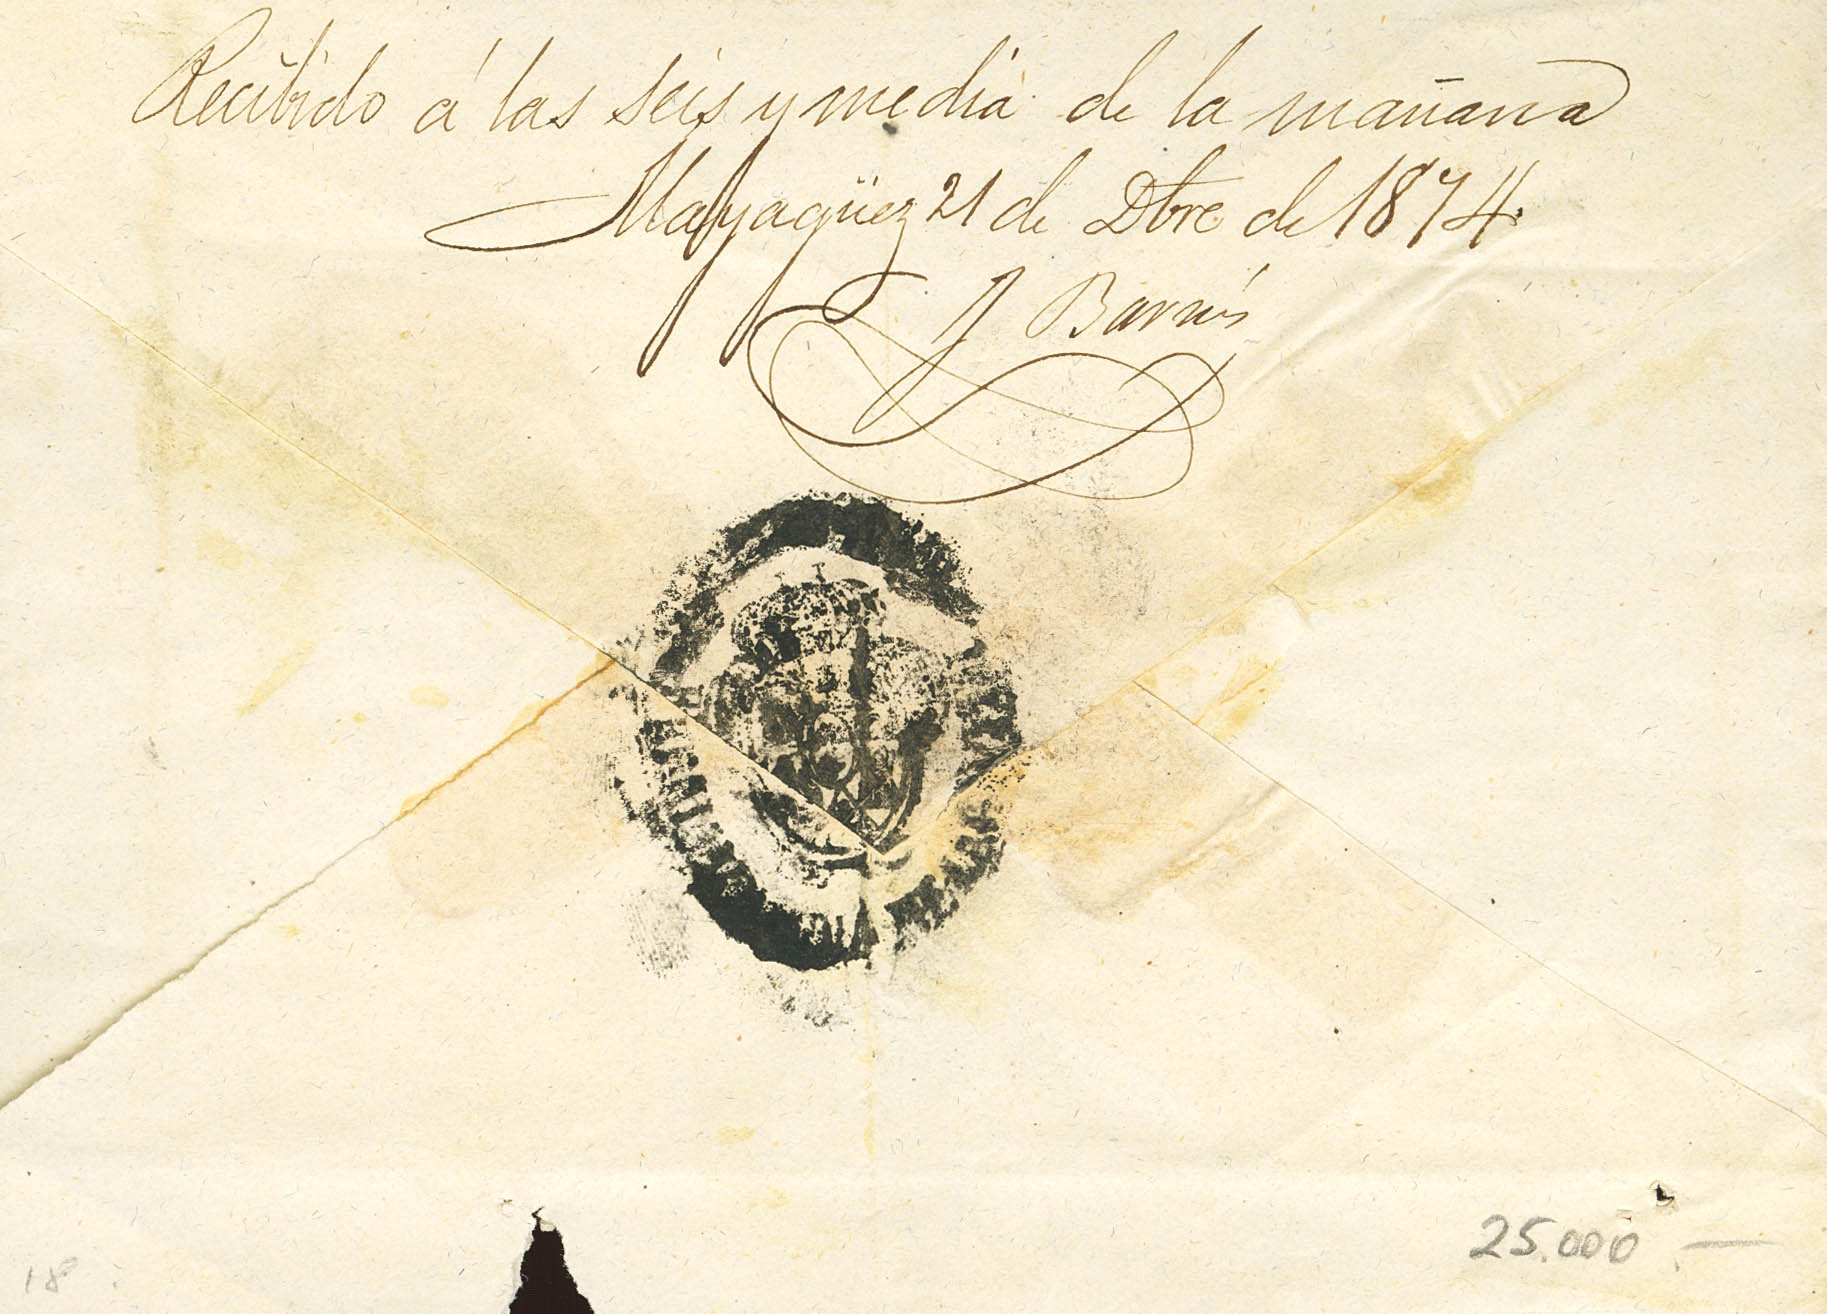 Recibido á las seis y media de la mañana
Mayagüez 21 de Dbre de 1874.
J Barnés
25.000 —
18